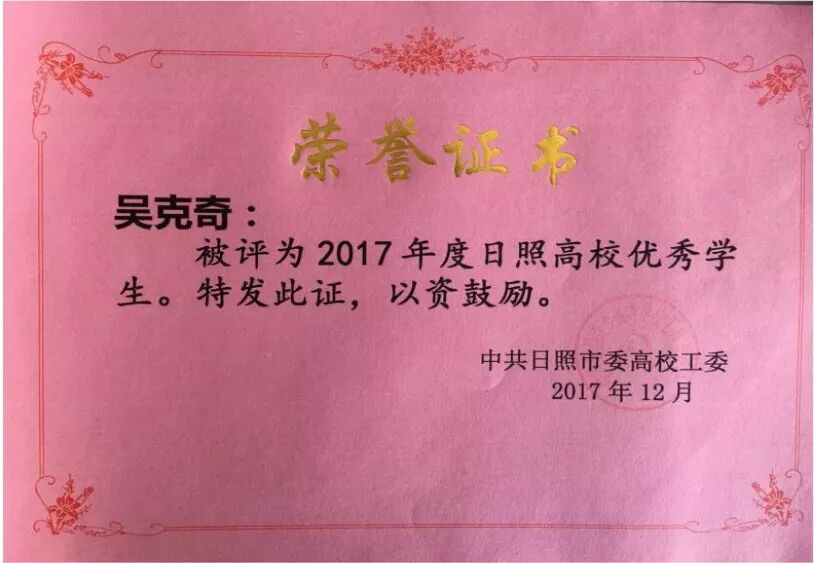 荣誉证书
吴克奇：
被评为 2017 年度日照高校优秀学
生。特发此证，以资鼓励。
中共日照市委高校工委
2017 年 12 月